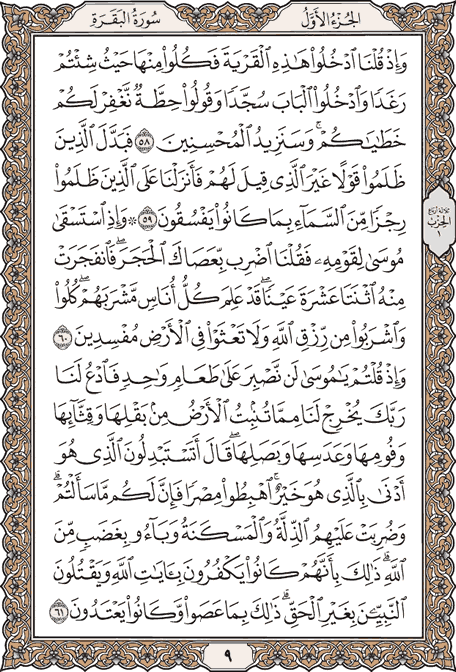 الجُزْءُ الأَوَّلُ
سُورَةُ البَقَرَةِ
وَإِذْ قُلْنَا ٱدْخُلُوا۟ هَٰذِهِ ٱلْقَرْيَةَ فَكُلُوا۟ مِنْهَا حَيْثُ شِئْتُمْ
رَغَدًا وَٱدْخُلُوا۟ ٱلْبَابَ سُجَّدًا وَقُولُوا۟ حِطَّةٌ نَّغْفِرْ لَكُمْ
خَطَٰيَٰكُمْ ۚ وَسَنَزِيدُ ٱلْمُحْسِنِينَ ٥٨ فَبَدَّلَ ٱلَّذِينَ
ظَلَمُوا۟ قَوْلًا غَيْرَ ٱلَّذِى قِيلَ لَهُمْ فَأَنزَلْنَا عَلَى ٱلَّذِينَ ظَلَمُوا۟
رِجْزًا مِّنَ ٱلسَّمَآءِ بِمَا كَانُوا۟ يَفْسُقُونَ ٥٩ ۞ وَإِذِ ٱسْتَسْقَىٰ
مُوسَىٰ لِقَوْمِهِۦ فَقُلْنَا ٱضْرِب بِّعَصَاكَ ٱلْحَجَرَ ۖ فَٱنفَجَرَتْ
مِنْهُ ٱثْنَتَا عَشْرَةَ عَيْنًا ۖ قَدْ عَلِمَ كُلُّ أُنَاسٍ مَّشْرَبَهُمْ ۖ كُلُوا۟
وَٱشْرَبُوا۟ مِن رِّزْقِ ٱللَّهِ وَلَا تَعْثَوْا۟ فِى ٱلْأَرْضِ مُفْسِدِينَ ٦٠
وَإِذْ قُلْتُمْ يَٰمُوسَىٰ لَن نَّصْبِرَ عَلَىٰ طَعَامٍ وَٰحِدٍ فَٱدْعُ لَنَا
رَبَّكَ يُخْرِجْ لَنَا مِمَّا تُنۢبِتُ ٱلْأَرْضُ مِنۢ بَقْلِهَا وَقِثَّآئِهَا
وَفُومِهَا وَعَدَسِهَا وَبَصَلِهَا ۖ قَالَ أَتَسْتَبْدِلُونَ ٱلَّذِى هُوَ
أَدْنَىٰ بِٱلَّذِى هُوَ خَيْرٌ ۚ ٱهْبِطُوا۟ مِصْرًا فَإِنَّ لَكُم مَّا سَأَلْتُمْ ۗ
وَضُرِبَتْ عَلَيْهِمُ ٱلذِّلَّةُ وَٱلْمَسْكَنَةُ وَبَآءُو بِغَضَبٍ مِّنَ
ٱللَّهِ ۗ ذَٰلِكَ بِأَنَّهُمْ كَانُوا۟ يَكْفُرُونَ بِـَٔايَٰتِ ٱللَّهِ وَيَقْتُلُونَ
ٱلنَّبِيِّـۧنَ بِغَيْرِ ٱلْحَقِّ ۗ ذَٰلِكَ بِمَا عَصَوا۟ وَّكَانُوا۟ يَعْتَدُونَ ٦١
الحزب
١
٩